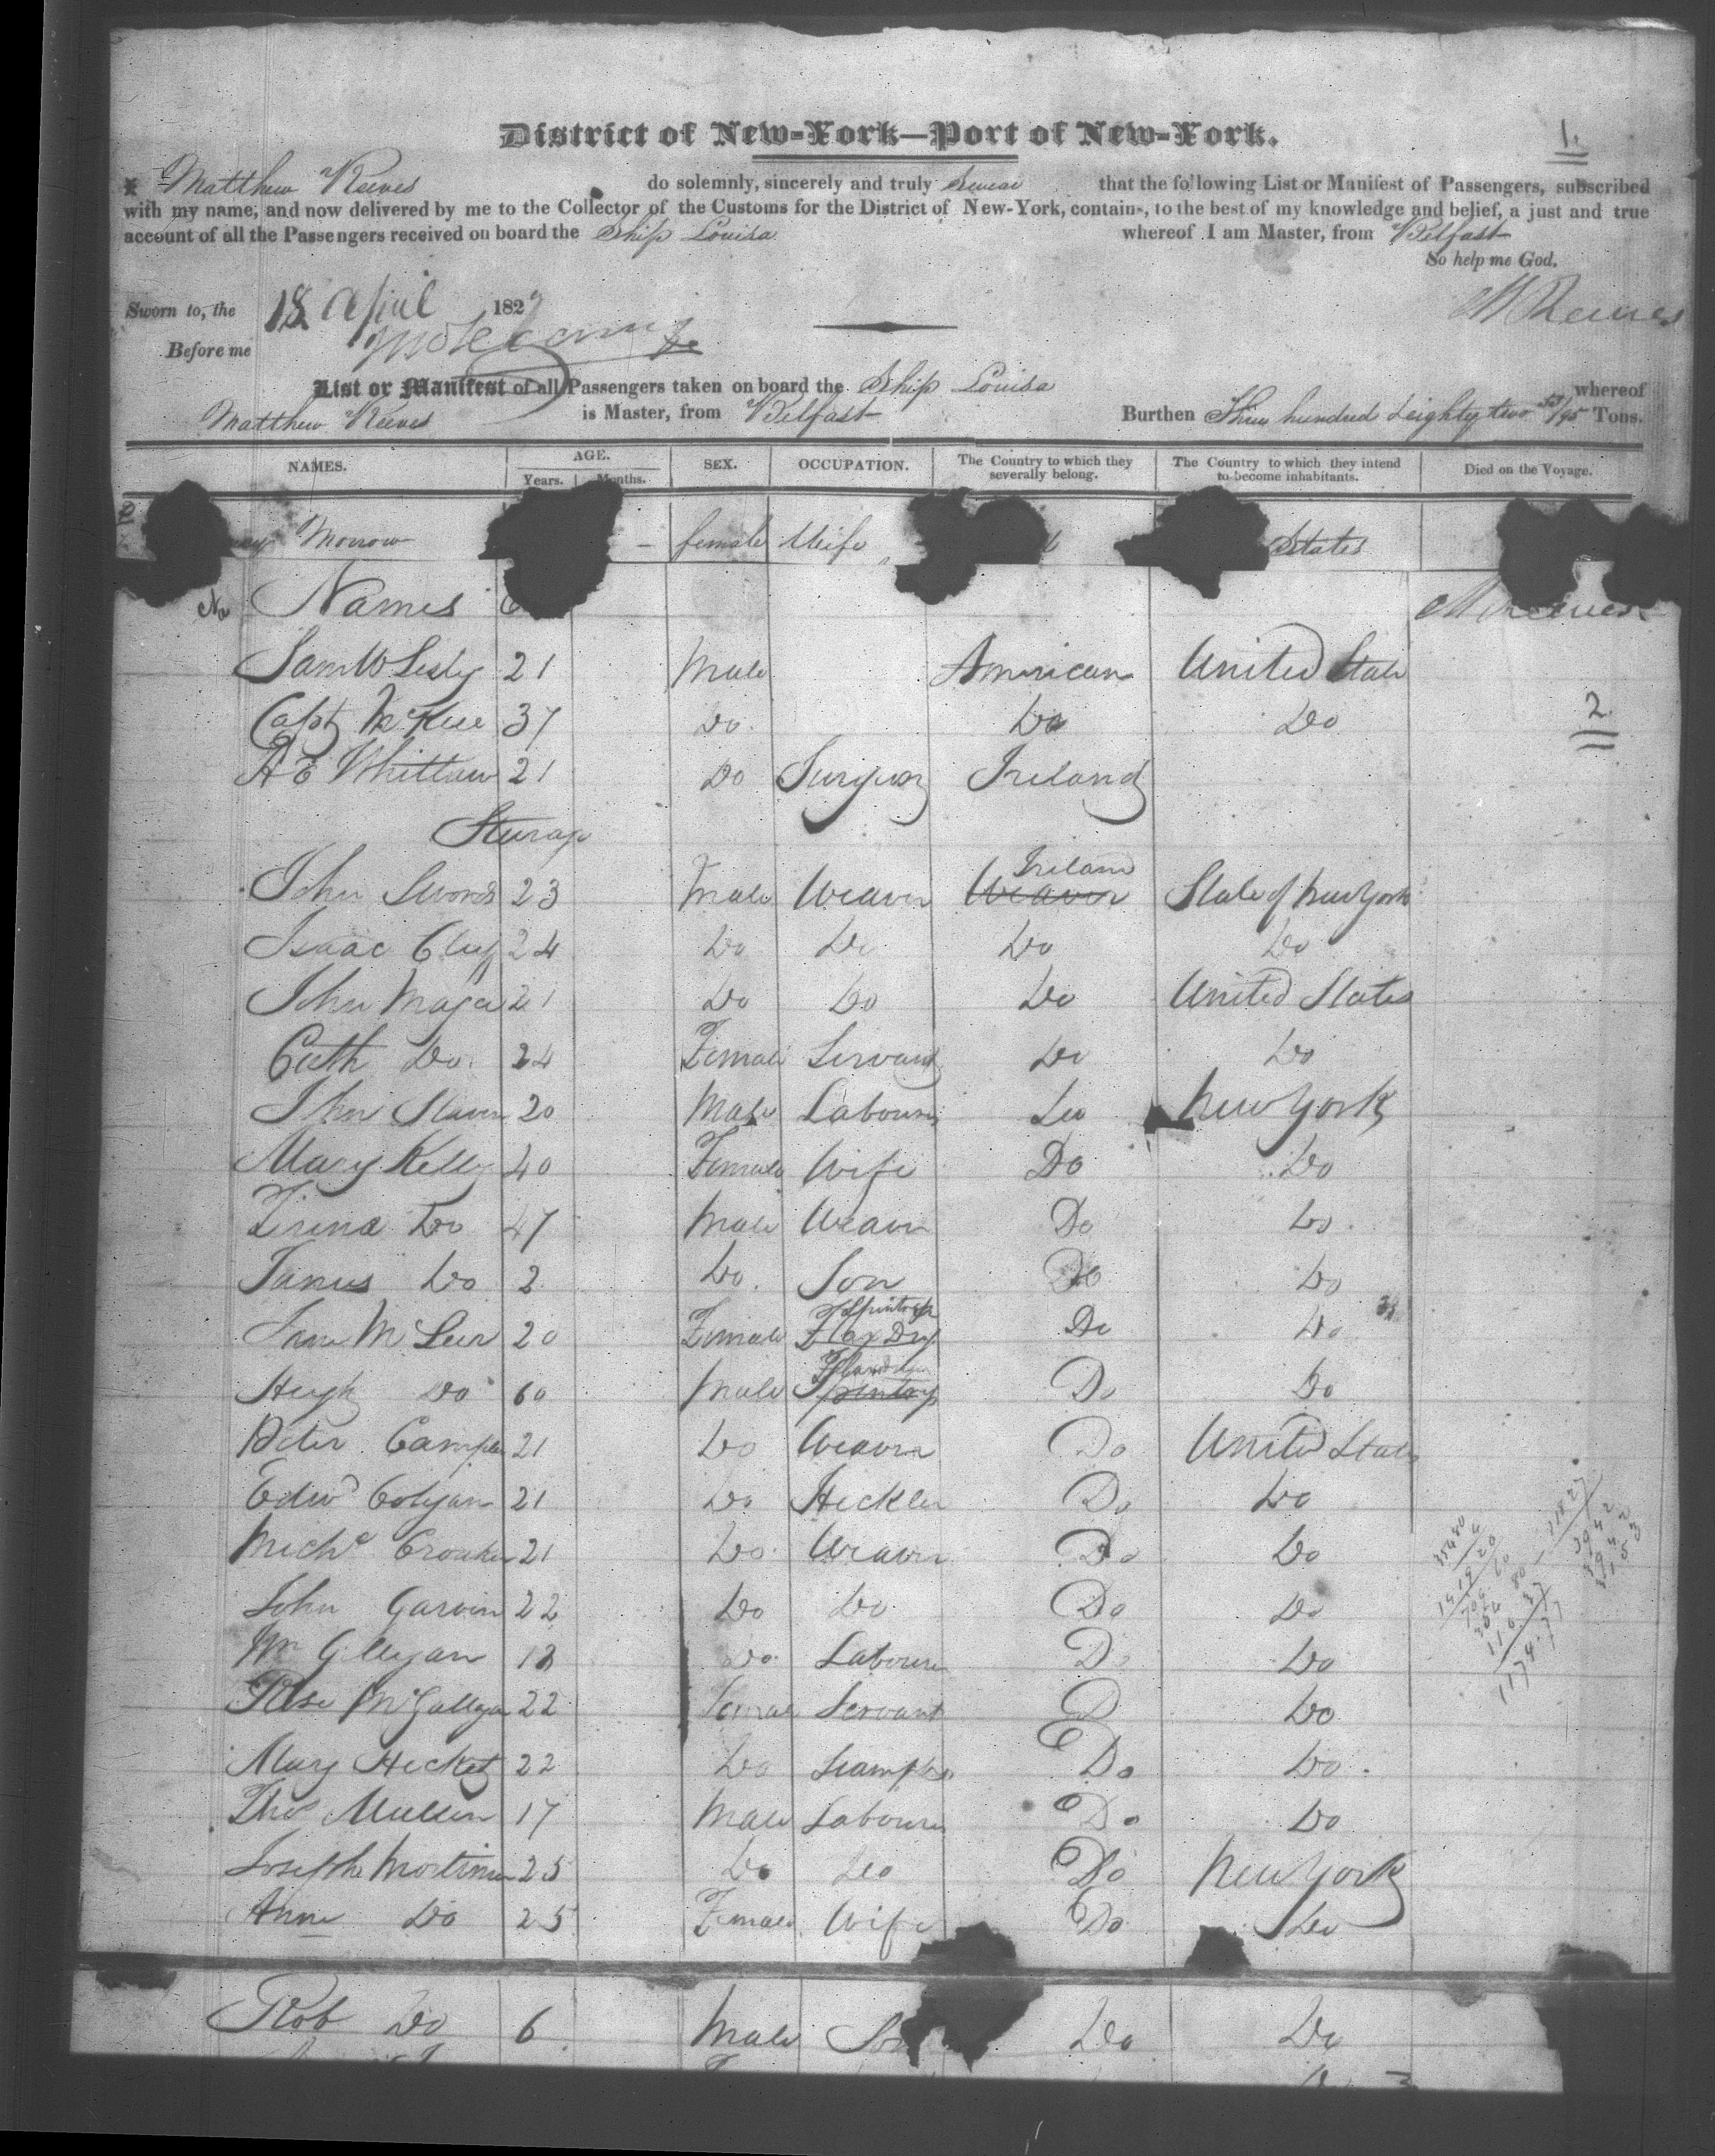 District of New-York—Port of New-York.
1.
I Matthew Reeves do solemnly, sincerely and truly Swear that the following List or Manifest of Passengers, subscribed
with my name, and now delivered by me to the Collector of the Customs for the District of New-York, contains, to the best of my knowledge and belief, a just and true
account of all the Passengers received on board the Ship Louisa whereof I am Master, from Belfast
So help me God.
M Reeves
Sworn to, the 18 April 1829
Before me
List or Manifest of all Passengers taken on board the Ship Louisa whereof
Matthew Reeves is Master, from Belfast Burthen Three hundred & eighty two 53/95 Tons.
NAMES. AGE. Years. Months. SEX. OCCUPATION. The Country to which they severally belong. The Country to which they intend to become inhabitants. Died on the Voyage.
Morrow – female Wife States
No Names M Reeves
Saml W Lesly 21 Male American United State
2
Capt McKee 37 Do Do Do
A E Whittaw 21 Do Surgeon Ireland
Sturage
Ireland
John Swords 23 Male Weaver Weaver State of New York
Isaac Clug 24 Do Do Do Do
John Magee 21 Do Do Do United States
Cath Do 24 Female Servant Do Do
John Slaven 20 Male Labourer Do New York
Mary Kelly 40 Female Wife Do Do
Do 47 Male Weaver Do Do
James Do 2 Do Son Do Do
Spinstr
Jane McLeer 20 Female Flax Dr Do Do
Hugh Do 60 Male Spinstr Do Do
Peter Campbe 21 Do Weaver Do United States
Edwd Colgan 21 Do Heckler Do Do
Michl Croaker 21 Do Weaver Do Do
John Garvin 22 Do Do Do Do
Wm Gilligan 18 Do Labourer D Do
Rose McGalligan 22 Female Servant D Do
Mary Hecket 22 Do Do Do
Thos Mullen 17 Male Labourer Do Do
Joseph Mortimer 25 Do Do Do New York
Anne Do 25 Female Wife Do Do
Rob Do 6 Male Son Do Do